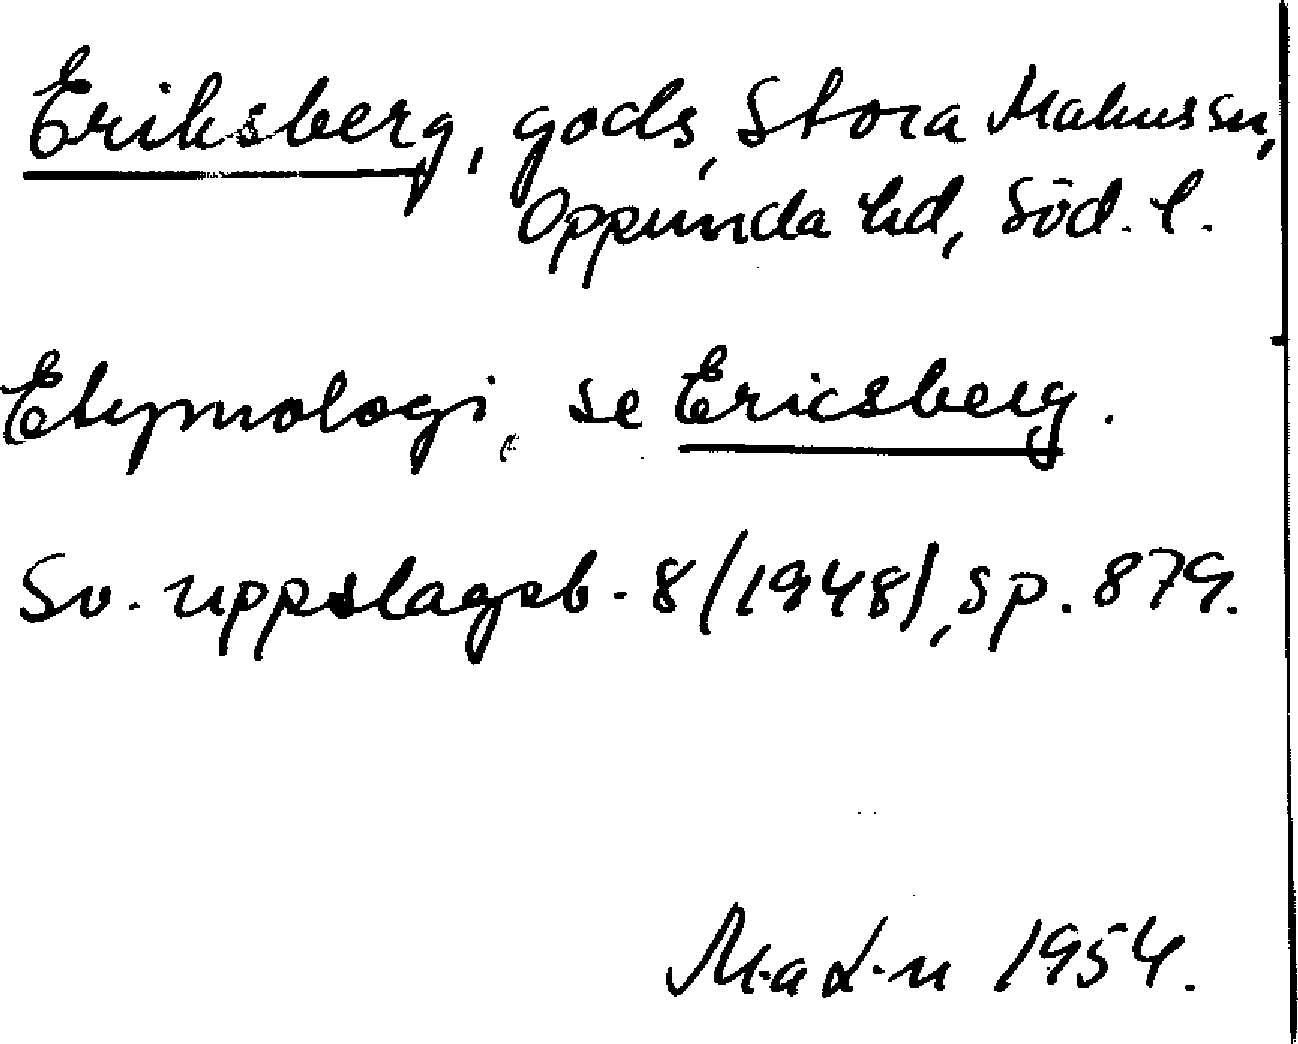 Eriksberg, gods, Stora Malms sn,
Oppunda hd, Söd. l.
Etymologi, se Ericsberg.
Sv. uppslagsb. 8 (1948), sp. 879.
1954.